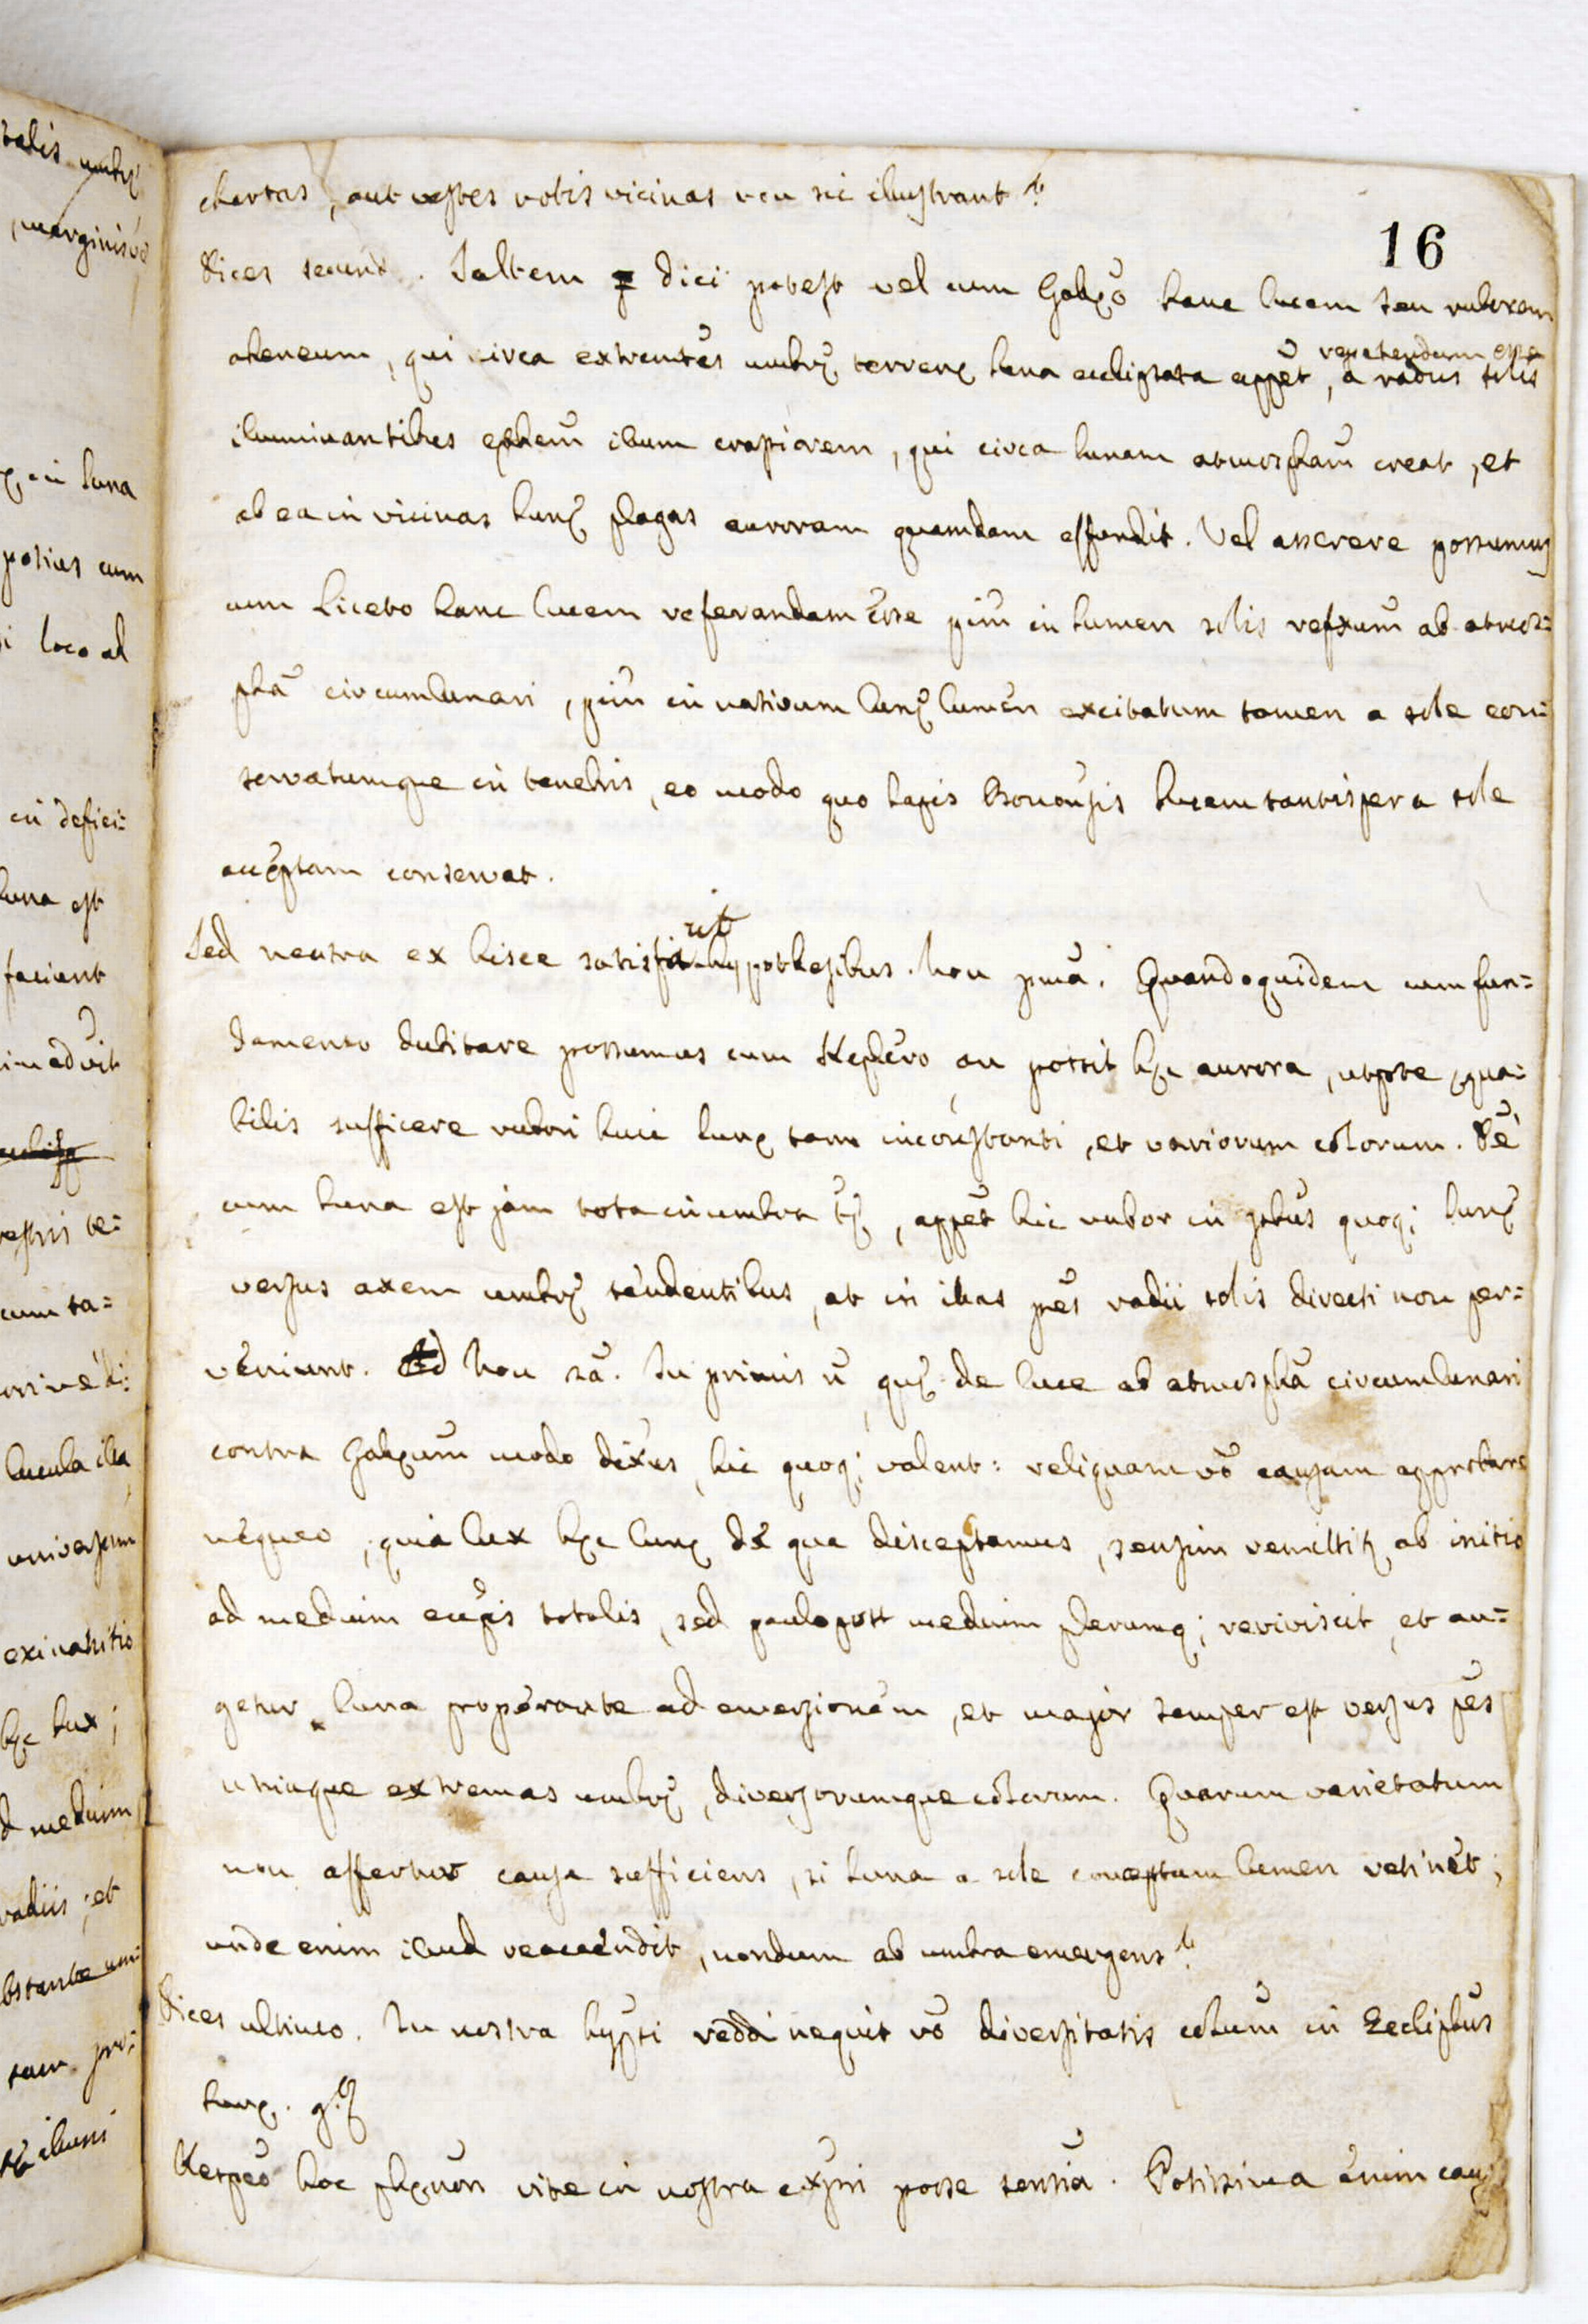 talis umbrę
, marginis vo
ę in luna
potius cum
i loco ad
in defici=
luna est
faciunt
im advit
vestris te=
cum ta=
lucula illa
universum
exinanitio
hęc lux;
d medium
radiis; et
bstante um
tam pro=
illumi
chartas, aut vestes vobis vicinas non sic illustrant?
16
Dices secund. Saltem dici potest vel cum Galęo hanc lucem seu ruborem
aheneum, qui circa extremtes umbrę terrenę luna eclipsata appet, revehendum esse a radiis solis
illuminantibus ętherm illum crassiorem, qui circa lunam atmosphram creat, et
ab ea in vicinas lunę plagas auroram quamdam effundit. Vel asserere possumus
cum Liceto hanc lucem referandam esse ptim in lumen solis reflxum ab atmos=
phra circumlunari, ptim in nativum lunę lumen excitatum tamen a sole con=
servatumque in tenebris, eo modo quo lapis Bononsis lucem tantisper a sole
acceptam conservat.
Sed neutra ex hisce satisfacit hypothesibus. Non pma. Quandoquidem cum fun=
damento dubitare possumus cum Keplero an possit hęc aurora, utpote ęqua=
bilis sufficere rubori huic lunę tam inconstanti, et variorum colorum. De
cum luna est jam tota in umbra trę, appet hic rubor in ptbus quoq; lunę
versus axem umbrę tendentibus, at in illas ptes radii solis directi non per=
veniunt. Non 2a. In primis n quę de luce ab atmosphra circumlunari
contra Galęum modo diximus, hic quoq; valent: reliquam vo causam approbare
nequeo, quia lux hęc lunę de qua disceptamus, sensim remittitr ab initio
ad medium eclipsis totalis, sed paulo post medium plerumq; reviviscit, et au=
getur luna properante ad emersionem, et major semper est versus ptes
utriusque extremas umbrę, diversorumque colorum. Quarum varietatum
non affertur causa sufficiens, si luna a sole conceptum lumen retinet;
unde enim illud reaccendit, nondum ab umbra emergens?
Dices ultimo. In nostra hypsi reddi nequit ro diversitatis colum in Eclipsbus
lunę. g.
Respeo hoc phęnon rite in nostra expni posse sentia. Potissima enim caus